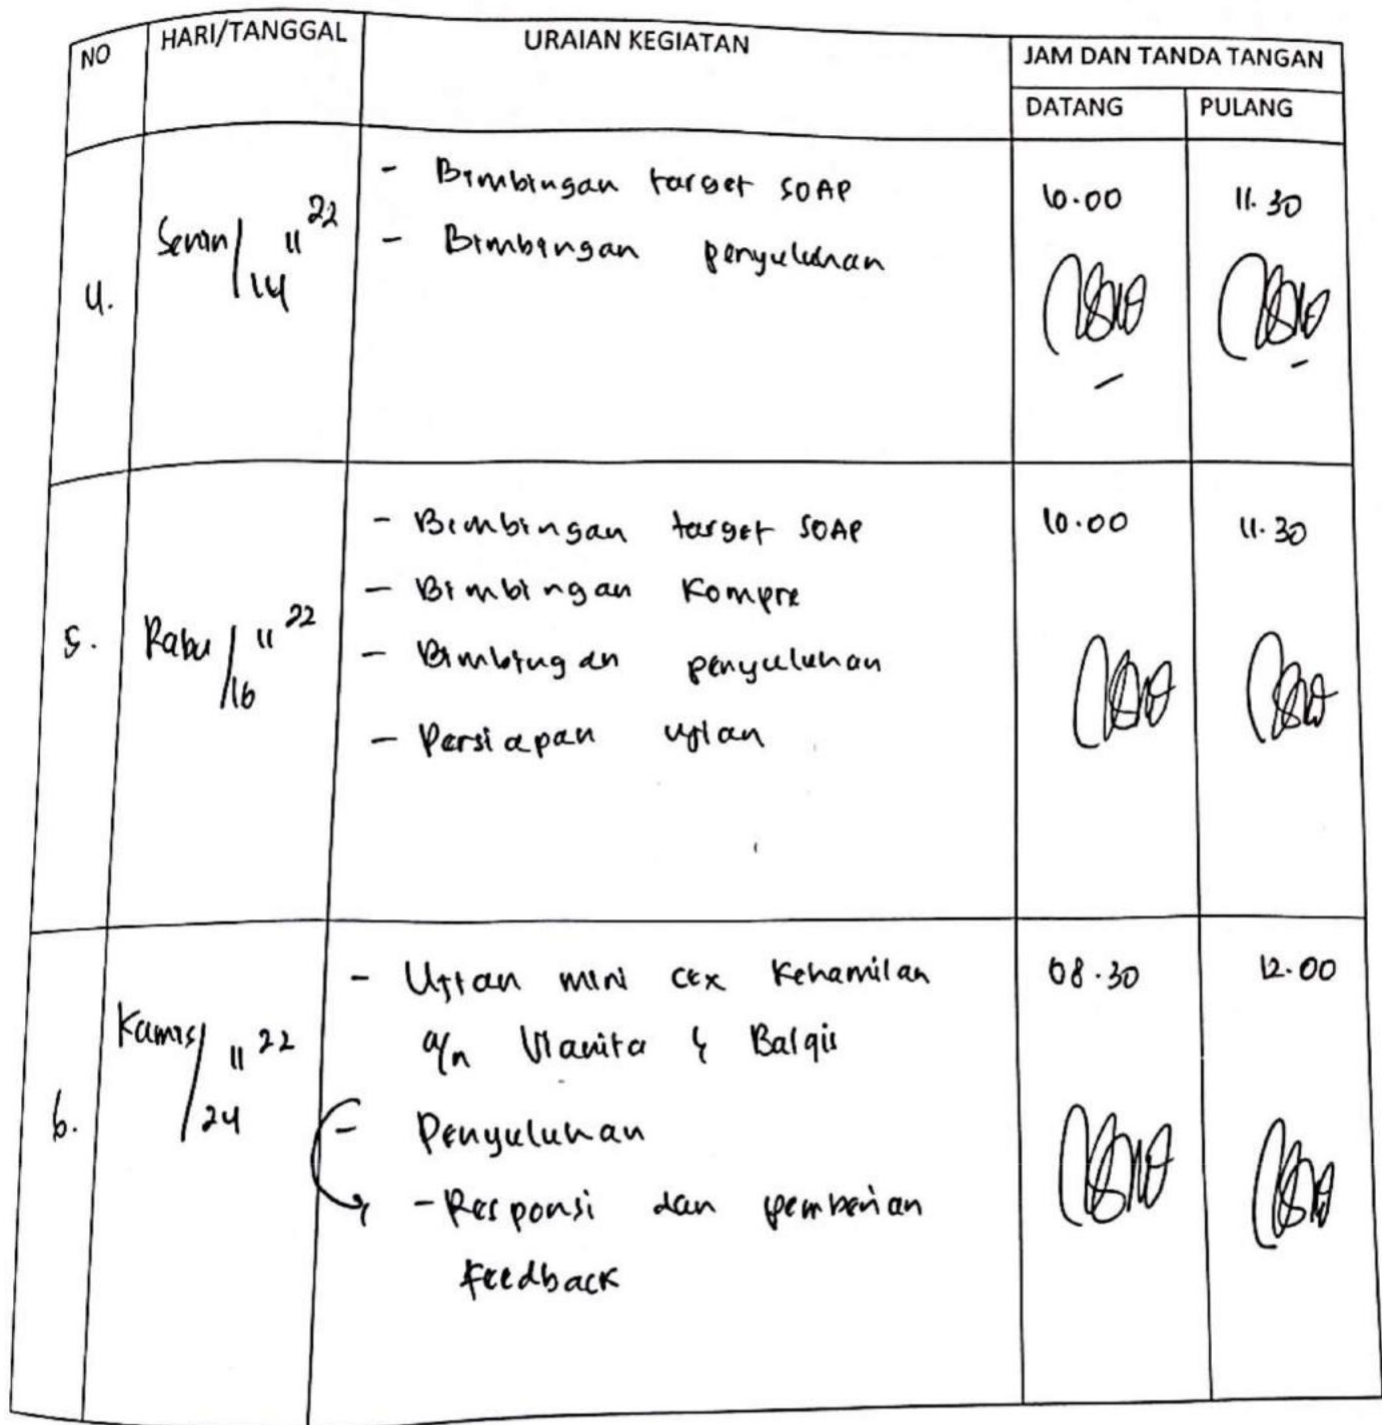 NO HARI/TANGGAL URAIAN KEGIATAN JAM DAN TANDA TANGAN
DATANG PULANG
4. Senin/14 11 22
- Bimbingan target SOAP
- Bimbingan penyuluhan
10.00 11.30
5. Rabu/16 11 22
- Bimbingan target SOAP
- Bimbingan Kompre
- Bimbingan penyuluhan
- Persiapan ujian
10.00 11.30
6. Kamis/24 11 22
- Ujian mini cex Kehamilan
a/n Vianita & Balqis
- Penyuluhan
- Responsi dan pemberian
Feedback
08.30 12.00